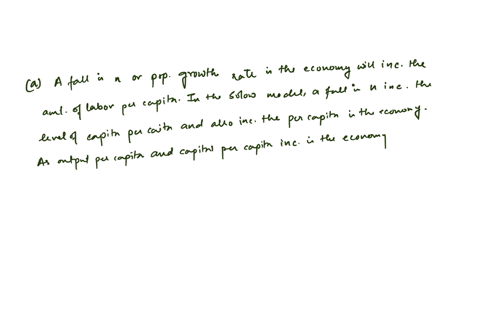 (a) A fall in n or pop. growth rate in the economy will inc. the
amt. of labor per capita. In the solow model, a fall in n inc. the
level of capita per caita and also inc. the per capita in the economy.
As output per capita and capital per capita inc. in the economy